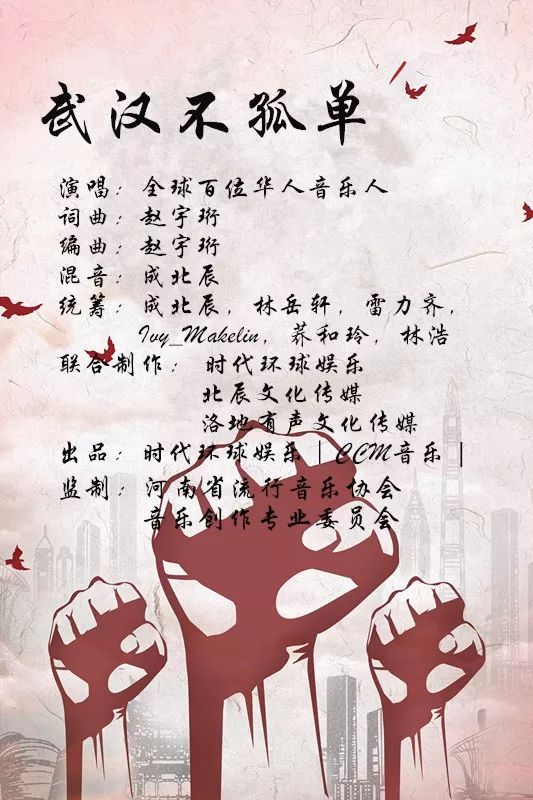 武汉不孤单
演唱：全球百位华人音乐人
词曲：赵宇珩
编曲：赵宇珩
混音：成北辰
统筹：成北辰，林岳轩，雷力齐，
Ivy_Makelin，莽和玲，林浩
联合制作：时代环球娱乐
北辰文化传媒
洛地有声文化传媒
出品：时代环球娱乐｜CCM音乐｜
监制：河南省流行音乐协会
音乐创作专业委员会